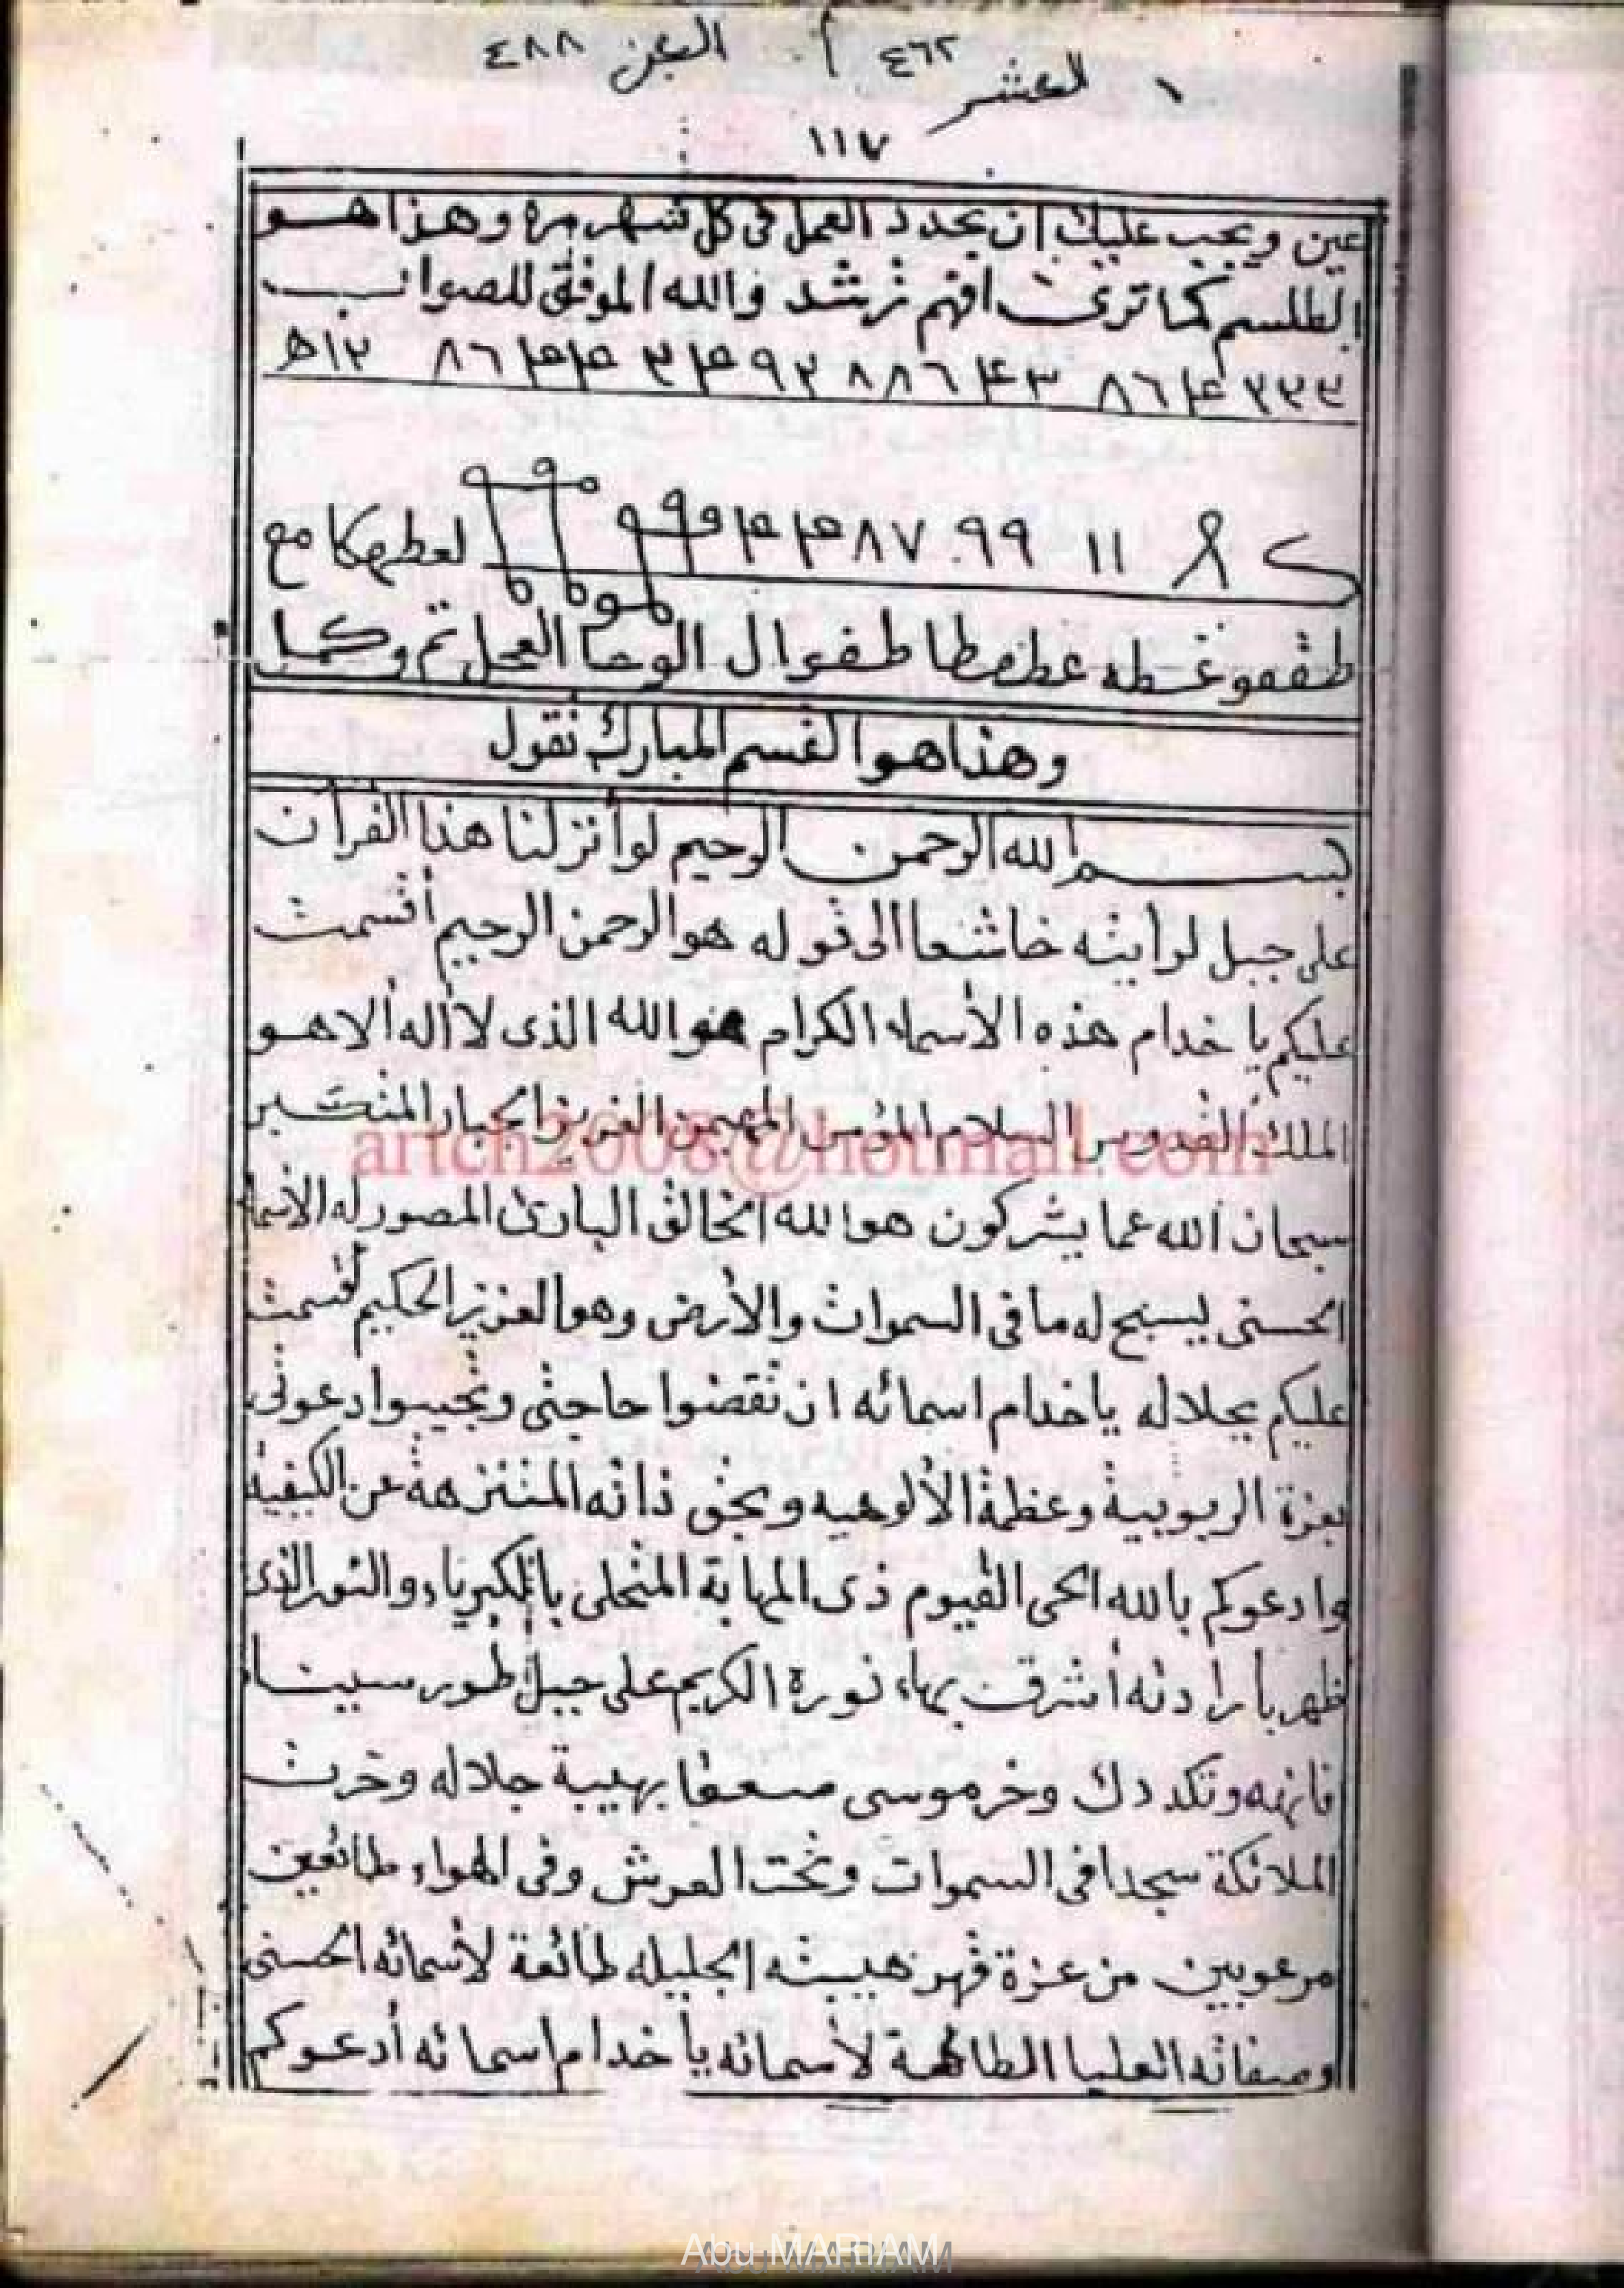 ٤٨٨ الجن ٤٦٢ الحشر
١١٧
عين ويجب عليك ان تجدد العمل فى كل شهر مرة وهذا هو
الطلسم كما ترى افهم ترشد والله الموفق للصواب
١١ ٩٩ ٨٧
طفغو غسطه عطمطا طفوال الوحا العجل تم وكمل
وهذا هو القسم المبارك تقول
بسم الله الرحمن الرحيم لو أنزلنا هذا القرآن
على جبل لرأيته خاشعا الى قوله هو الرحمن الرحيم أقسمت
عليكم يا خدام هذه الأسماء الكرام هو الله الذى لا أله ألا هو
الملك القدوس السلام المؤمن المهيمن العزيز الجبار المتكبر
سبحان الله عما يشركون هو الله الخالق البارئ المصور له الأسماء
الحسنى يسبح له ما فى السموات والأرض وهو العزيز الحكيم أقسمت
عليكم بجلاله ياخدام اسمائه ان تقضوا حاجتى وتجيبوا دعوتى
بعزة الربوبية وعظمة الألوهيه وبحق ذاته المنزهة عن الكيفية
وادعوكم بالله الحى القيوم ذى المهابة المتحلى بالكبرياء والنور الذى
ظهر بأرادته أشرق بهاء نوره الكريم على جبل طور سيناء
وتكدك وخر موسى صعقا بهيبة جلاله وخرت
الملائكة سجدا فى السموات وتحت العرش وفى الهواء طائعين
مرعوبين من عزة قهر هيبته الجليله طائعة لأسمائه الحسنى
وصفاته العليا الطائعة لأسمائه يا خدام اسمائه أدعوكم
artch2008@hotmail.com
Abu MARIAM